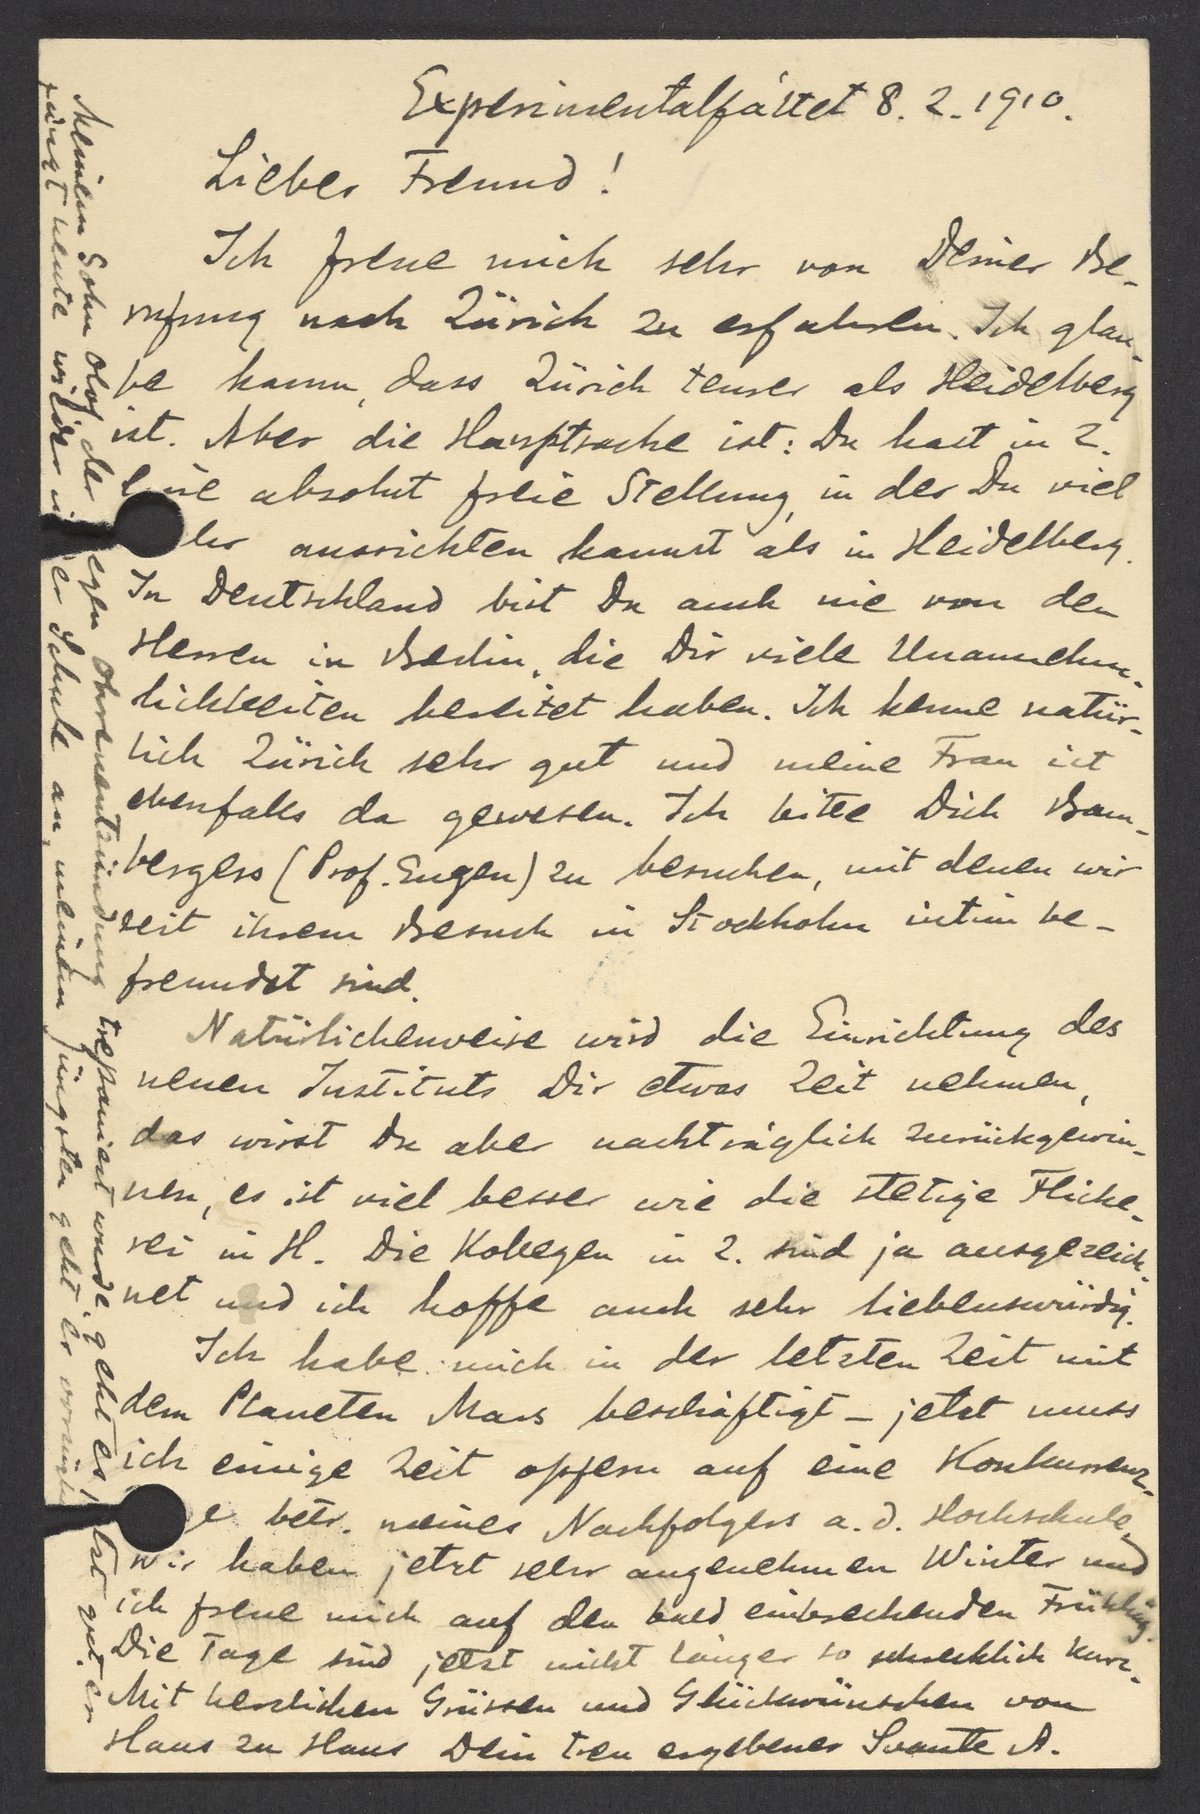 Experimentalfältet 8. 2. 1910.
Lieber Freund!
Ich freue mich sehr von Deiner Be-
rufung nach Zürich zu erfahren. Ich glau-
be kaum, dass Zürich teurer als Heidelberg
ist. Aber die Hauptsache ist: Du hast in Z.
eine absolut freie Stellung, in der Du viel
hr ausrichten kannst als in Heidelberg.
In Deutschland bist Du auch nie von den
Herren in Berlin, die Dir viele Unannehm-
lichkeiten bereitet haben. Ich kenne natür-
lich Zürich sehr gut und meine Frau ist
ebenfalls da gewesen. Ich bitte Dich Bam-
bergers (Prof. Eugen) zu besuchen, mit denen wir
seit ihrem Besuch in Stockholm intim be-
freundet sind.
Natürlicherweise wird die Einrichtung des
neuen Instituts Dir etwas Zeit nehmen,
das wirst Du aber nachträglich zurückgewin-
nen, es ist viel besser wie die stetige Flicke-
rei in H. Die Kollegen in Z. sind ja ausgezeich-
net und ich hoffe auch sehr liebenswürdig.
Ich habe mich in der letzten Zeit mit
dem Planeten Mars beschäftigt – jetzt muss
ich einige Zeit opfern auf eine Konkurrenz-
ge betr. meines Nachfolgers a. d. Hochschule.
Wir haben jetzt sehr angenehmen Winter und
ich freue mich auf den bald einbrechenden Frühling.
Die Tage sind jetzt nicht länger so schrecklich kurz.
Mit herzlichen Grüssen und Glückwünschen von
Haus zu Haus Dein treu ergebener Svante A.
Meinem Sohn Olof der egen Ohrenentzündung trepaniert wurde, geht es jetzt gut. er
fängt heute wieder in er Schule an, meinem jüngsten geht es